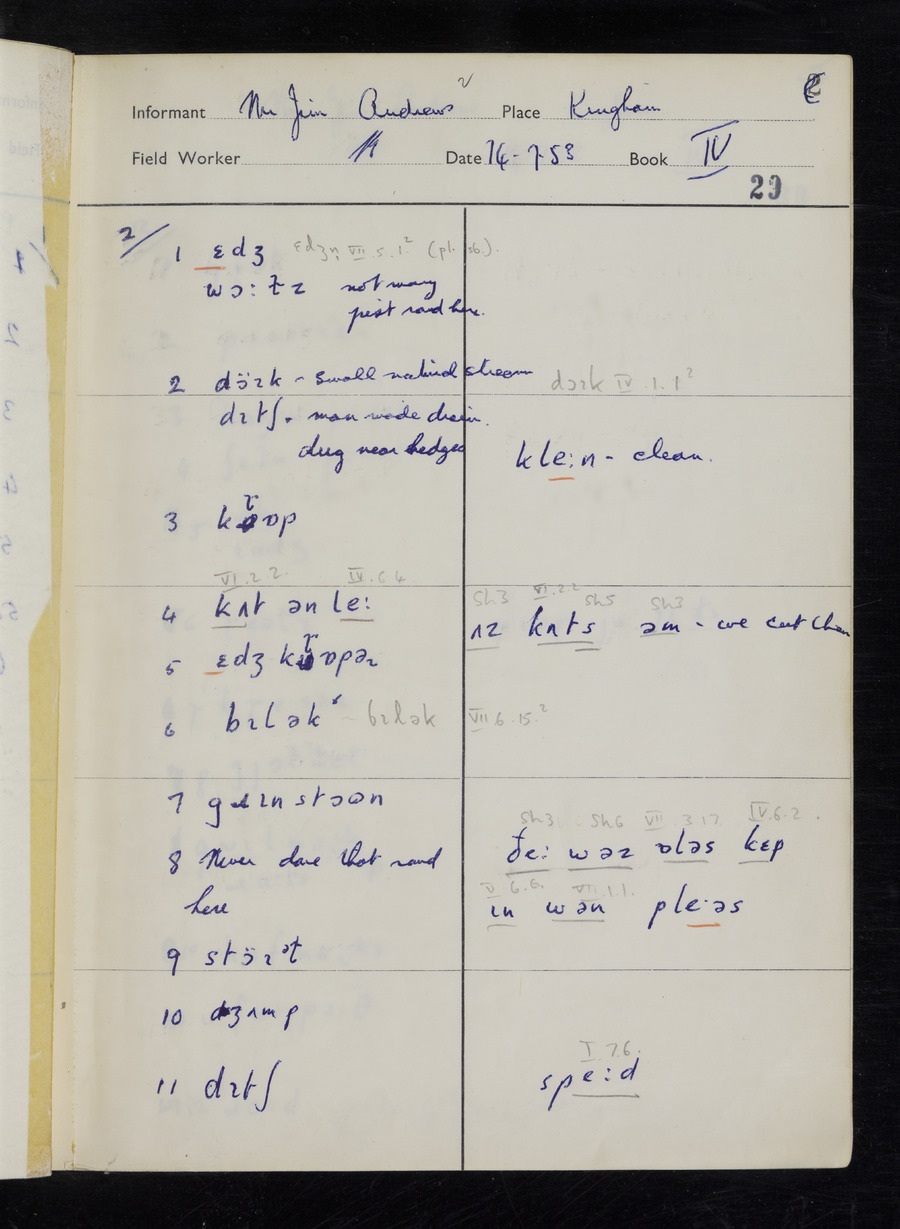 Informant Mr Jim Andrews Place Kingham
Field Worker Date 14-7-53 Book IV
29
2/ 1 ɛdʒ ɛdʒɪz VII.5.1² (pl. sb).
wɔ:tə not many
pest round here.
2 dɔ̈ɹk - small natural stream dɔɹk IV.1.1²
dɪtʃ - man made drain.
dug near hedges kle:n - clean.
3 kɹɒp
VI.2.2. IV.6.4
4 kʌt ən le:
Sh3 VI.2.2 Sh5 Sh3
ʌz kʌts əm - we cut them
5 ɛdʒ kɹɒpəɹ
6 bɪlək - bɪlək VII.6.15.²
7 gɹɪnstɔʊn
Sh3 Sh6 VII 3.17 IV.6.2.
8 Never done that round ðe: wəz ɒləs kɛp
here
V 6.6. VII.1.1.
ɪn wən ple:əs
9 stɔ̈ɹət
10 dʒʌmp
I.7.6.
11 dɪtʃ spe:d